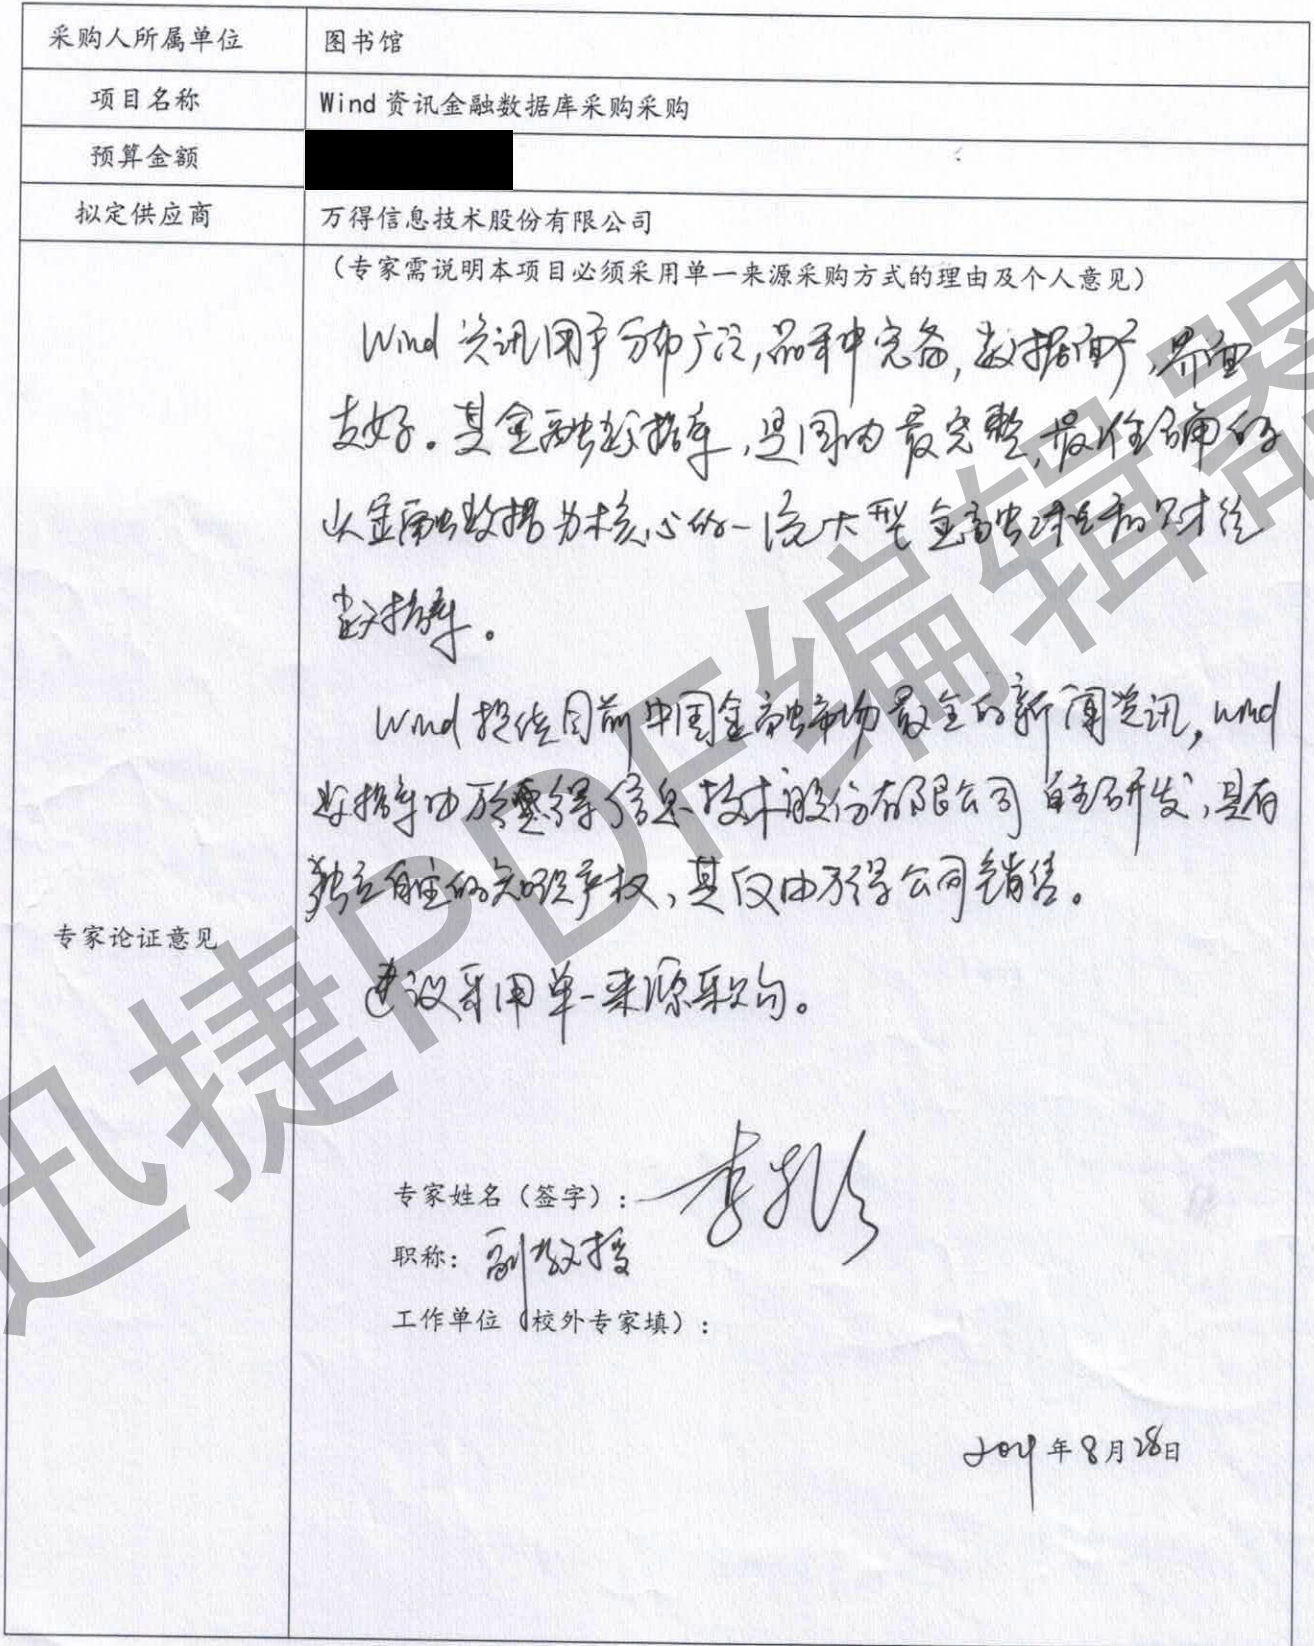 采购人所属单位 图书馆
项目名称 Wind 资讯金融数据库采购采购
预算金额
拟定供应商 万得信息技术股份有限公司
（专家需说明本项目必须采用单一来源采购方式的理由及个人意见）
Wind 资讯用户分布广泛,品种完备,数据面广,界面
友好。其金融数据库,是国内最完整,最准确的
以金融数据为核心的一流大型金融 和财经
数据库。
Wind 提供目前中国金融市场最全的新闻资讯, wind
数据库由万得信息技术股份有限公司自主研发,具有
独立自主的知识产权,其仅由万得公司销售。
专家论证意见
建议采用单一来源采购。
专家姓名（签字）: 李
职称: 副教授
工作单位（校外专家填）:
年8月28日
迅捷PDF编辑器